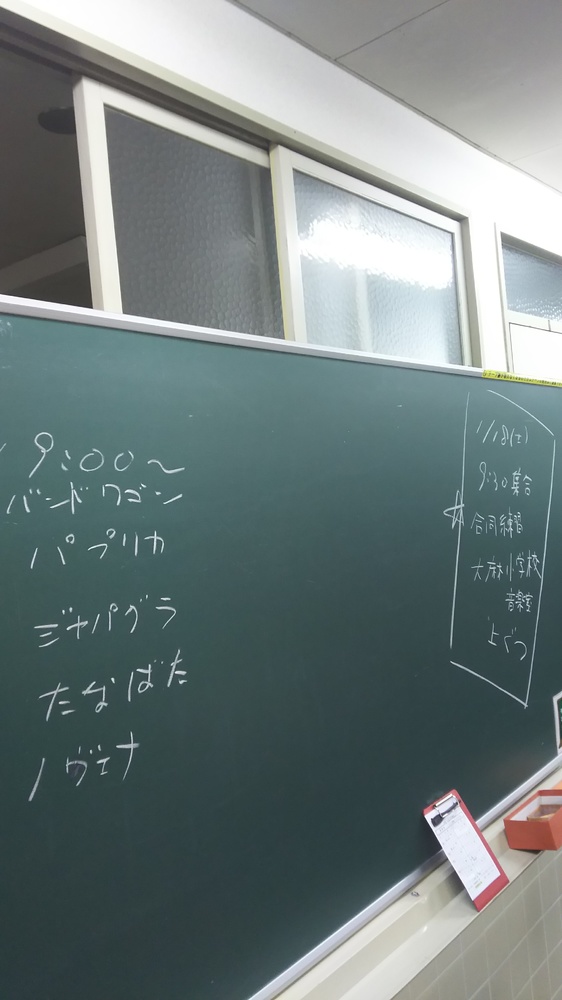 9:00～
バンドワゴン
パプリカ
ジャパグラ
たなばた
ノヴェナ
1/18(土)
9:30集合
☆合同練習
大麻小学校
音楽室
上ぐつ